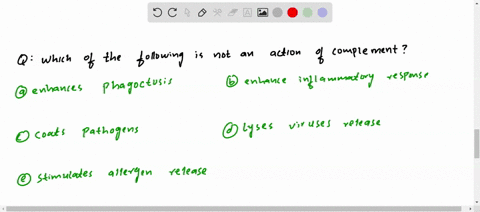 Q: Which of the following is not an action of complement?
(a) enhances phagoctusis
(b) enhance inflammatory response
(c) coats pathogens
(d) lyses viruses release
(e) stimulates allergen release